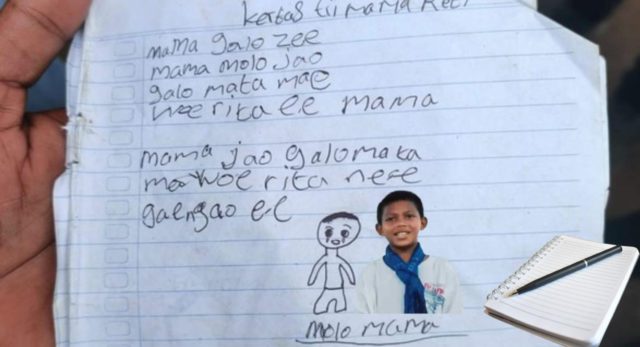 kertas tii mama Reti
mama galo zee
mama molo jao
galo mata mae
woe rita ee mama
mama jao galo mata
mae woe rita nee e
gaengao ee
molo mama